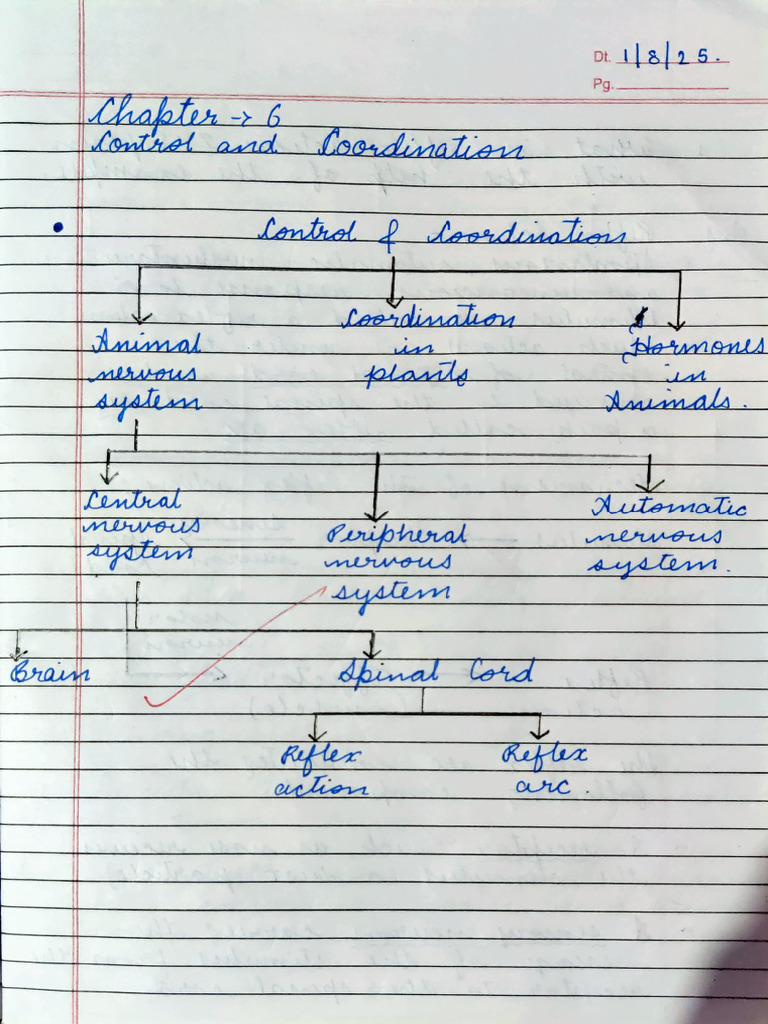 Dt. 1/8/25.
Pg.
Chapter → 6
Control and Coordination
• Control & Coordination
Animal nervous system
Coordination in plants
Hormones in Animals.
Central nervous system
Peripheral nervous system
Automatic nervous system.
Brain
Spinal Cord
Reflex action
Reflex arc.